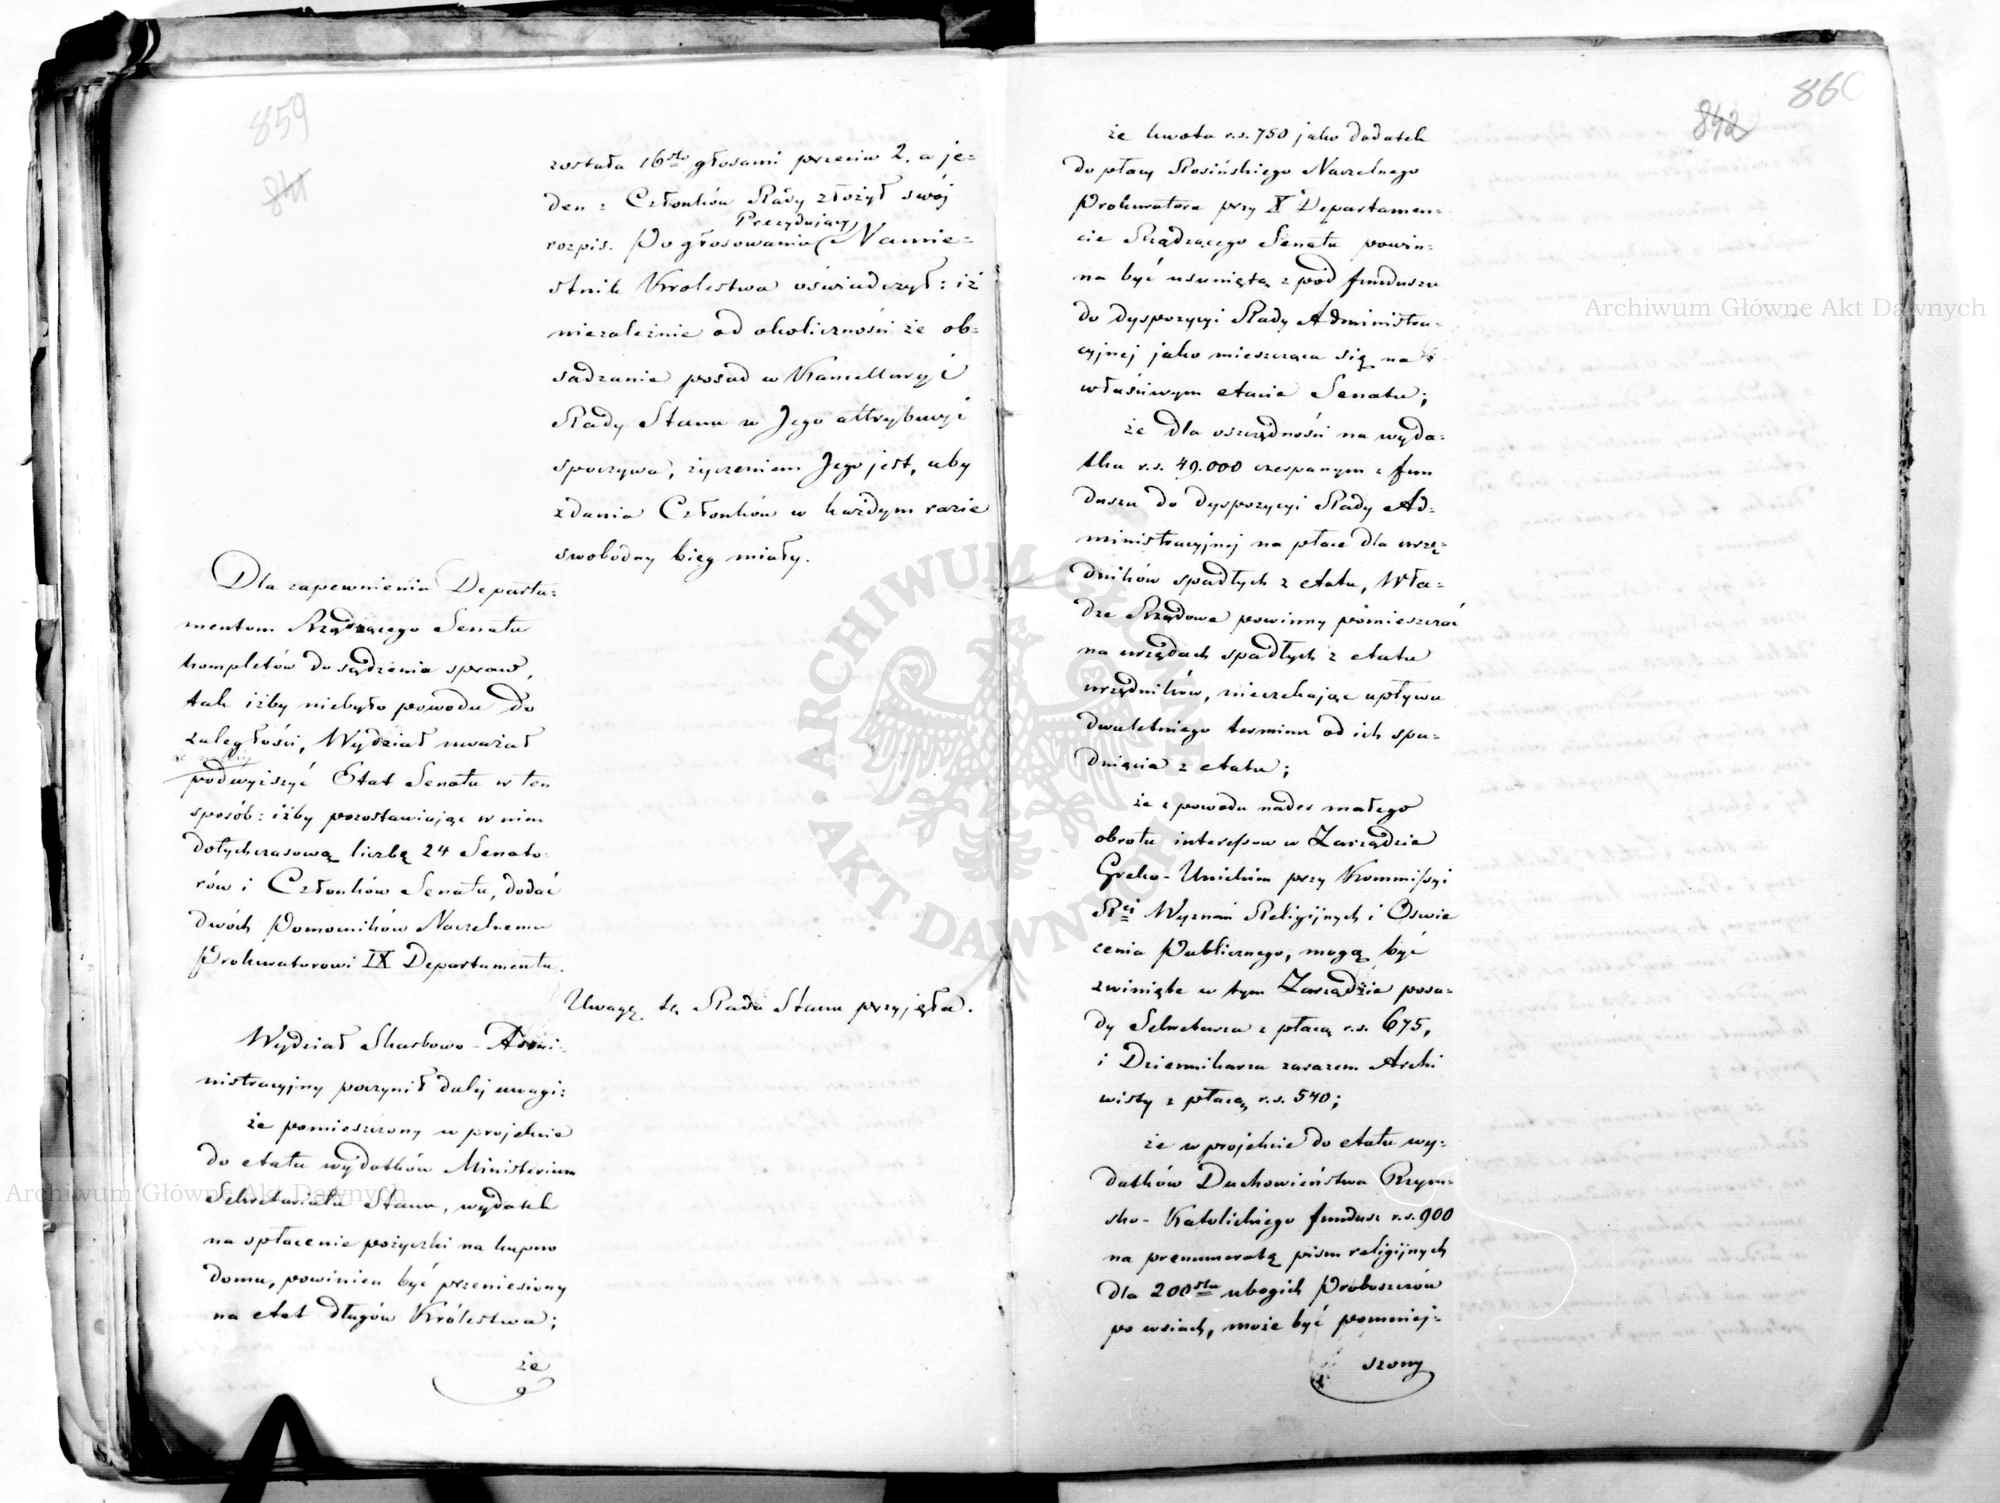 859
841
została 16stu głosami przeciw 2, a je-
den z Członków Rady złożył swój
Prezydujący
rozpis. Po głosowaniu Namie-
stnik Królestwa oświadczył: iż
niezależnie od okoliczności że ob-
sadzanie posad w Kancellaryi
Rady Stanu w Jego attrybucyi
spoczywa, życzeniem Jego jest, aby
zdania Członków w każdym razie
swobodny bieg miały.
Dla zapewnienia Departa-
mentom Rządzącego Senatu
kompletów do sądzenia spraw,
tak iżby niebyło powodu do
zaległości, Wydział uważał
podwyższyć Etat Senatu w ten
sposób: iżby pozostawiając w nim
dotychczasową liczbę 24 Senato-
rów i Członków Senatu, dodać
dwóch Pomocników Naczelnemu
Prokuratorowi IX Departamentu.
Uwagę tę Rada Stanu przyjęła.
Wydział Skarbowo-Admi-
nistracyjny poczynił dalej uwagi:
że pomieszczony w projekcie
do etatu wydatków Ministerium
Sekretariatu Stanu, wydatek
na spłacenie pożyczki na kupno
domu, powinien być przeniesiony
na etat długów Królestwa;
że
860
842
że kwota r.s. 750 jako dodatek
do płacy Rosińskiego Naczelnego
Prokuratora przy X Departamen-
cie Rządzącego Senatu powin-
na być usunięta z pod funduszu
do dyspozycyi Rady Administra-
cyjnej jako mieszcząca się na
właściwym etacie Senatu;
że dla oszczędności na wyda-
tku r.s. 49.000 czerpanym z fun
duszu do dyspozycyi Rady Ad-
ministracyjnej na płace dla urzę-
dników spadłych z etatu, Wła-
dze Rządowe powinny pomieszczać
na urzędach spadłych z etatu
urzędników, nieczekając upływu
dwuletniego terminu od ich spa-
dnięcia z etatu;
że z powodu nader małego
obrotu interessów w Zarządzie
Greko-Unickim przy Kommissyi
Rej Wyznań Religijnych i Oświe
cenia Publicznego, mogą być
zwinięte w tym Zarządzie posa-
dy Sekretarza z płacą r.s. 675,
i Dziennikarza zarazem Archi
wisty z płacą r.s. 540;
że w projekcie do etatu wy-
datków Duchowieństwa Rzym-
sko-Katolickiego fundusz r.s. 900
na prenumeratę pism religijnych
dla 200stu ubogich Proboszczów
po wsiach, może być pomniej-
szony
Archiwum Główne Akt Dawnych
Archiwum Główne Akt Dawnych
ARCHIWUM GŁÓWNE
AKT DAWNYCH